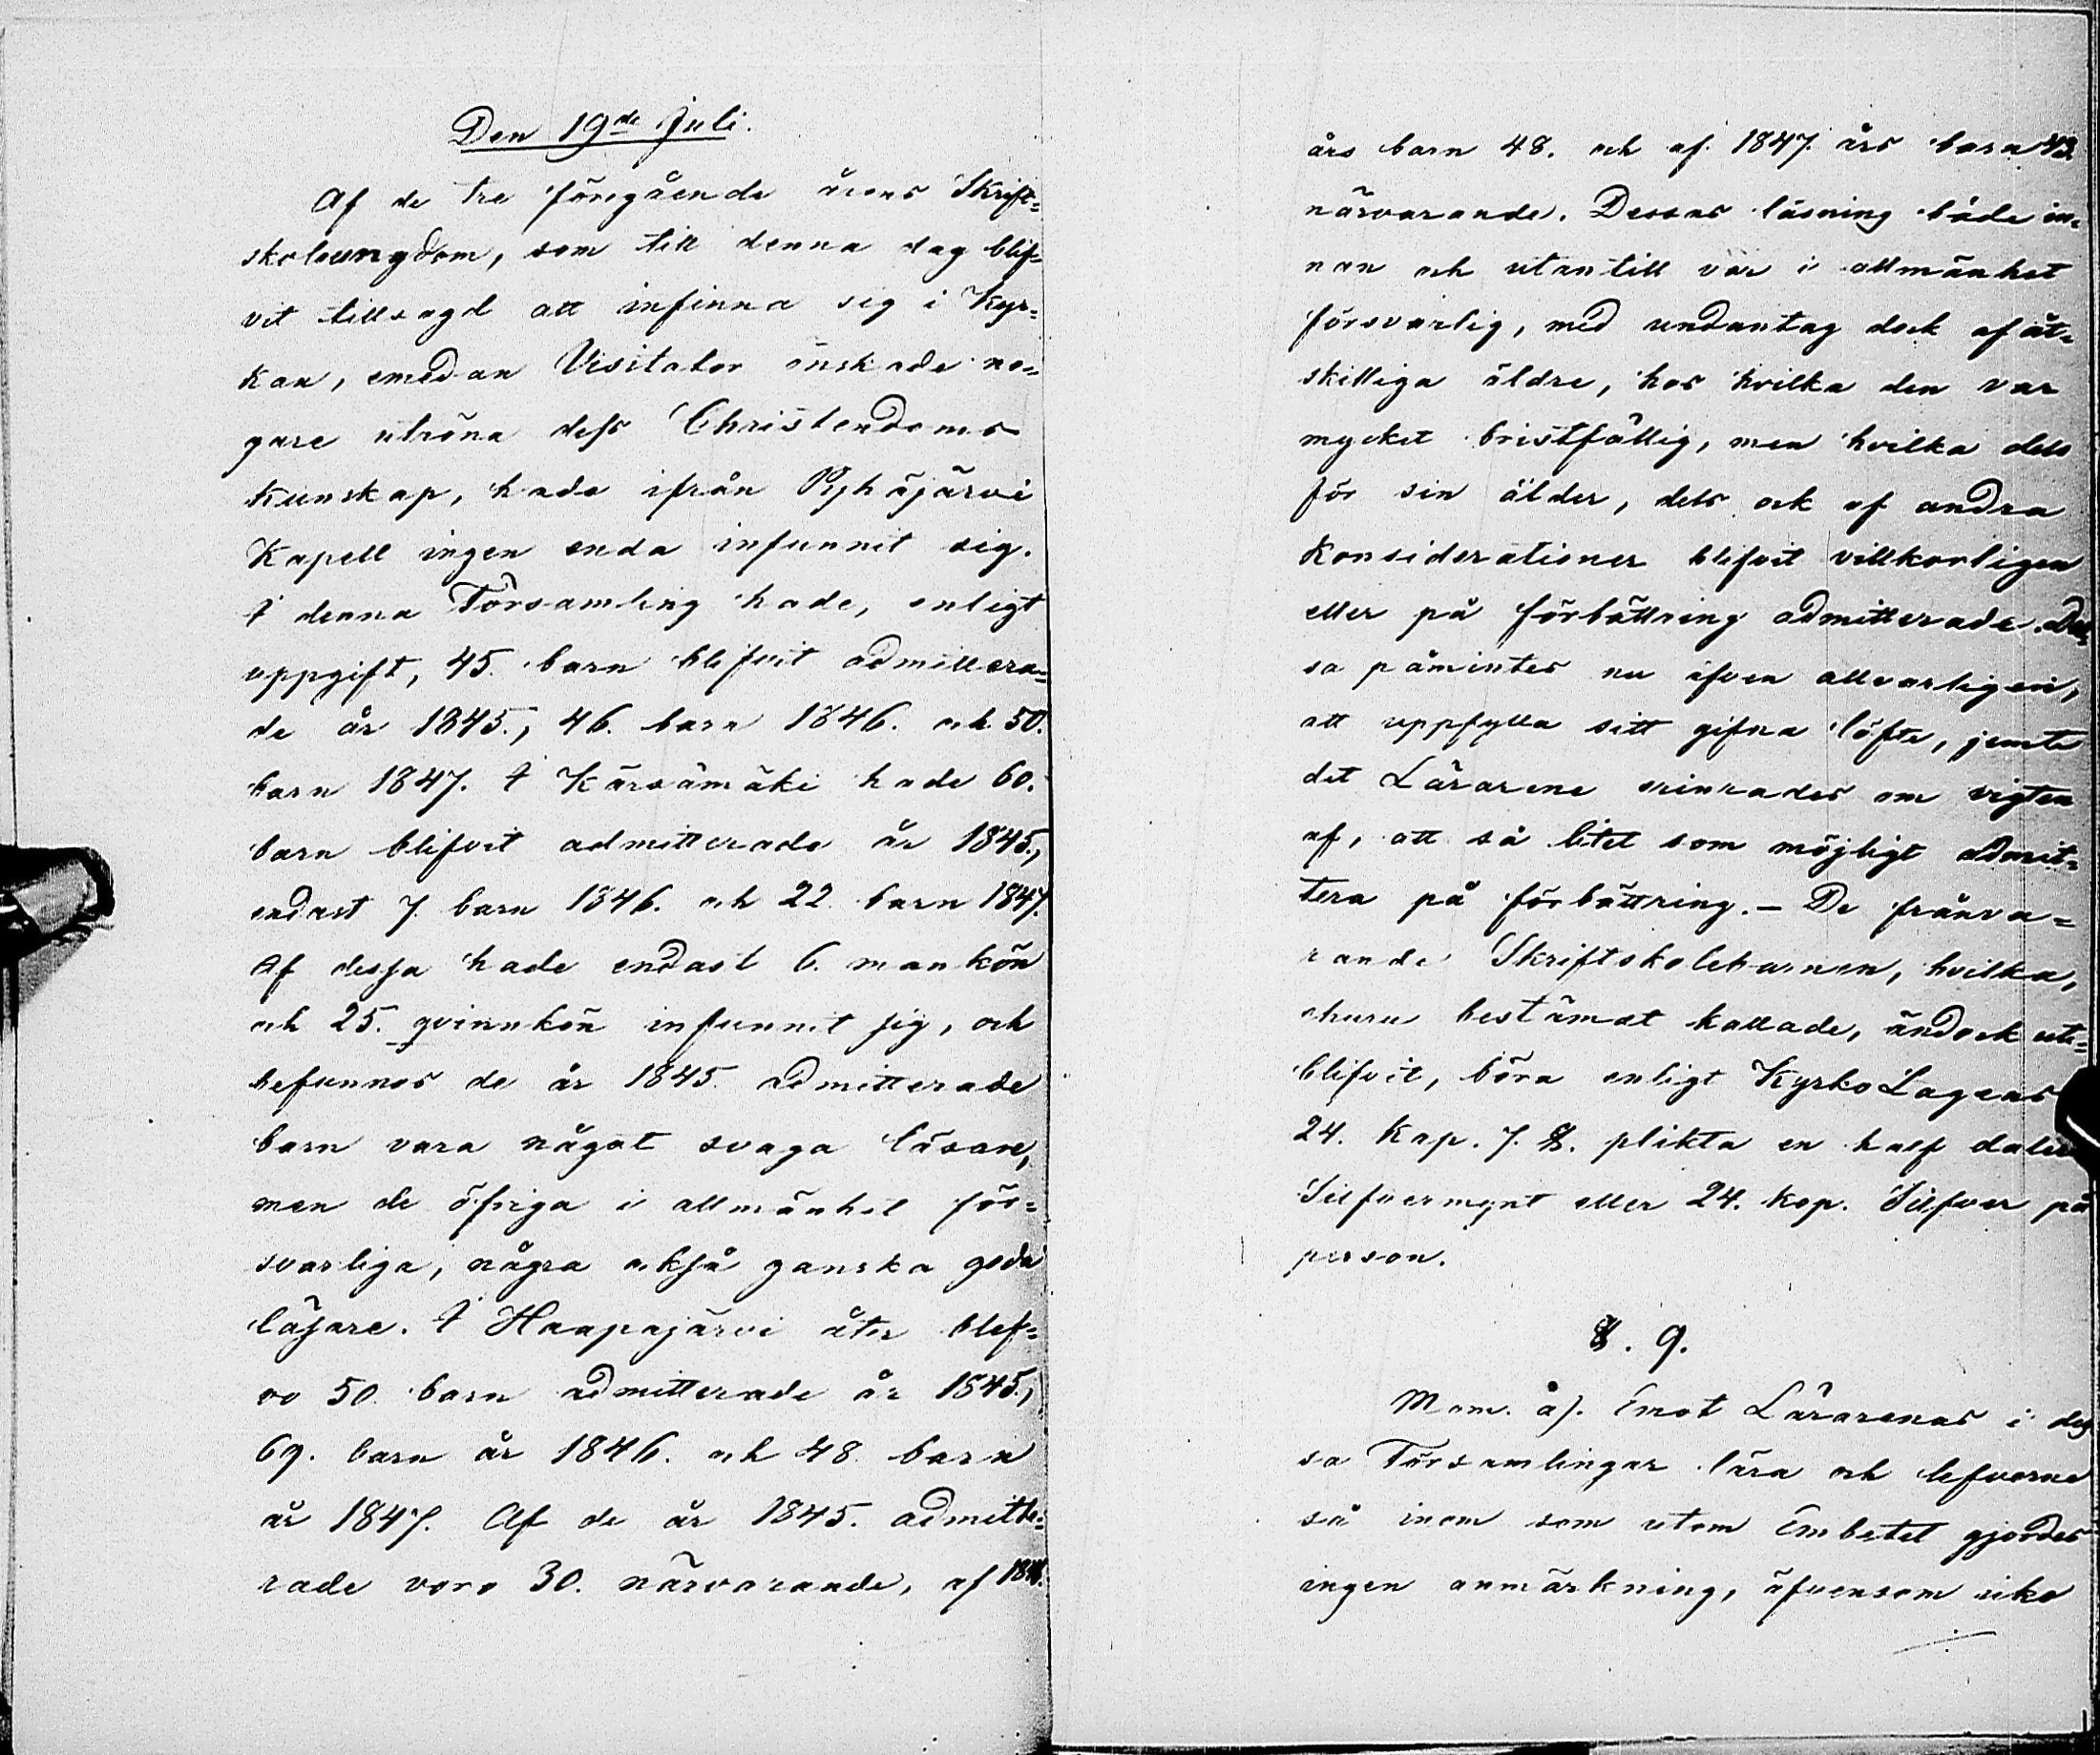 Den 19de Juli.
Af de tre föregående årens Skrift=
skoleungdom, som till denna dag blif=
vit tillsagd att infinna sig i Kyr=
kan, emedan Visitator önskade no=
gare utröna dess Christendoms
kunskap, hade ifrån Pyhäjärvi
Kapell ingen enda infunnit sig.
I denna Församling hade, enligt
uppgift, 45. barn blifvit admittera=
de år 1845., 46. barn 1846. och 50.
barn 1847. I Kärsämäki hade 60.
barn blifvit admitterade år 1845.,
endast 7. barn 1846. och 22. barn 1847.
Af dessa hade endast 6. mankön
och 25. qvinnkön infunnit sig, och
befunnos de år 1845. admitterade
barn vara något svaga läsare,
men de öfriga i allmänhet för=
svarliga, några också ganska goda
läsare. I Haapajärvi åter blef=
vo 50. barn admitterade år 1845.,
69. barn år 1846. och 48. barn
år 1847. Af de år 1845. admitte=
rade voro 30. närvarande, af 1846.
års barn 48. och af 1847. års barn 43.
närvarande. Dessas läsning både in=
nan och utantill var i allmänhet
försvarlig, med undantag dock af åt=
skilliga äldre, hos hvilka den var
mycket bristfällig, men hvilka dels
för sin ålder, dels ock af andra
Konsiderationer blifvit villkorligen
eller på förbättring admitterade. Des=
sa påmintes nu äfven allvarligen,
att uppfylla sitt gifna löfte, jemte
det Lärarene erinrades om vigten
af, att så litet som möjligt admit=
tera på förbättring. — De frånva=
rande Skriftskolebarnen, hvilka,
ehuru bestämdt kallade, ändock ute=
blifvit, böra enligt KyrkoLagens
24. Kap. 7. §. plikta en half daler
Silfvermynt eller 24. kop. Silfver på
person.
§. 9.
Mom. a). Emot Lärarenas i des
sa Församlingar lära och lefverne
så inom som utom Embetet gjordes
ingen anmärkning, äfvensom icke